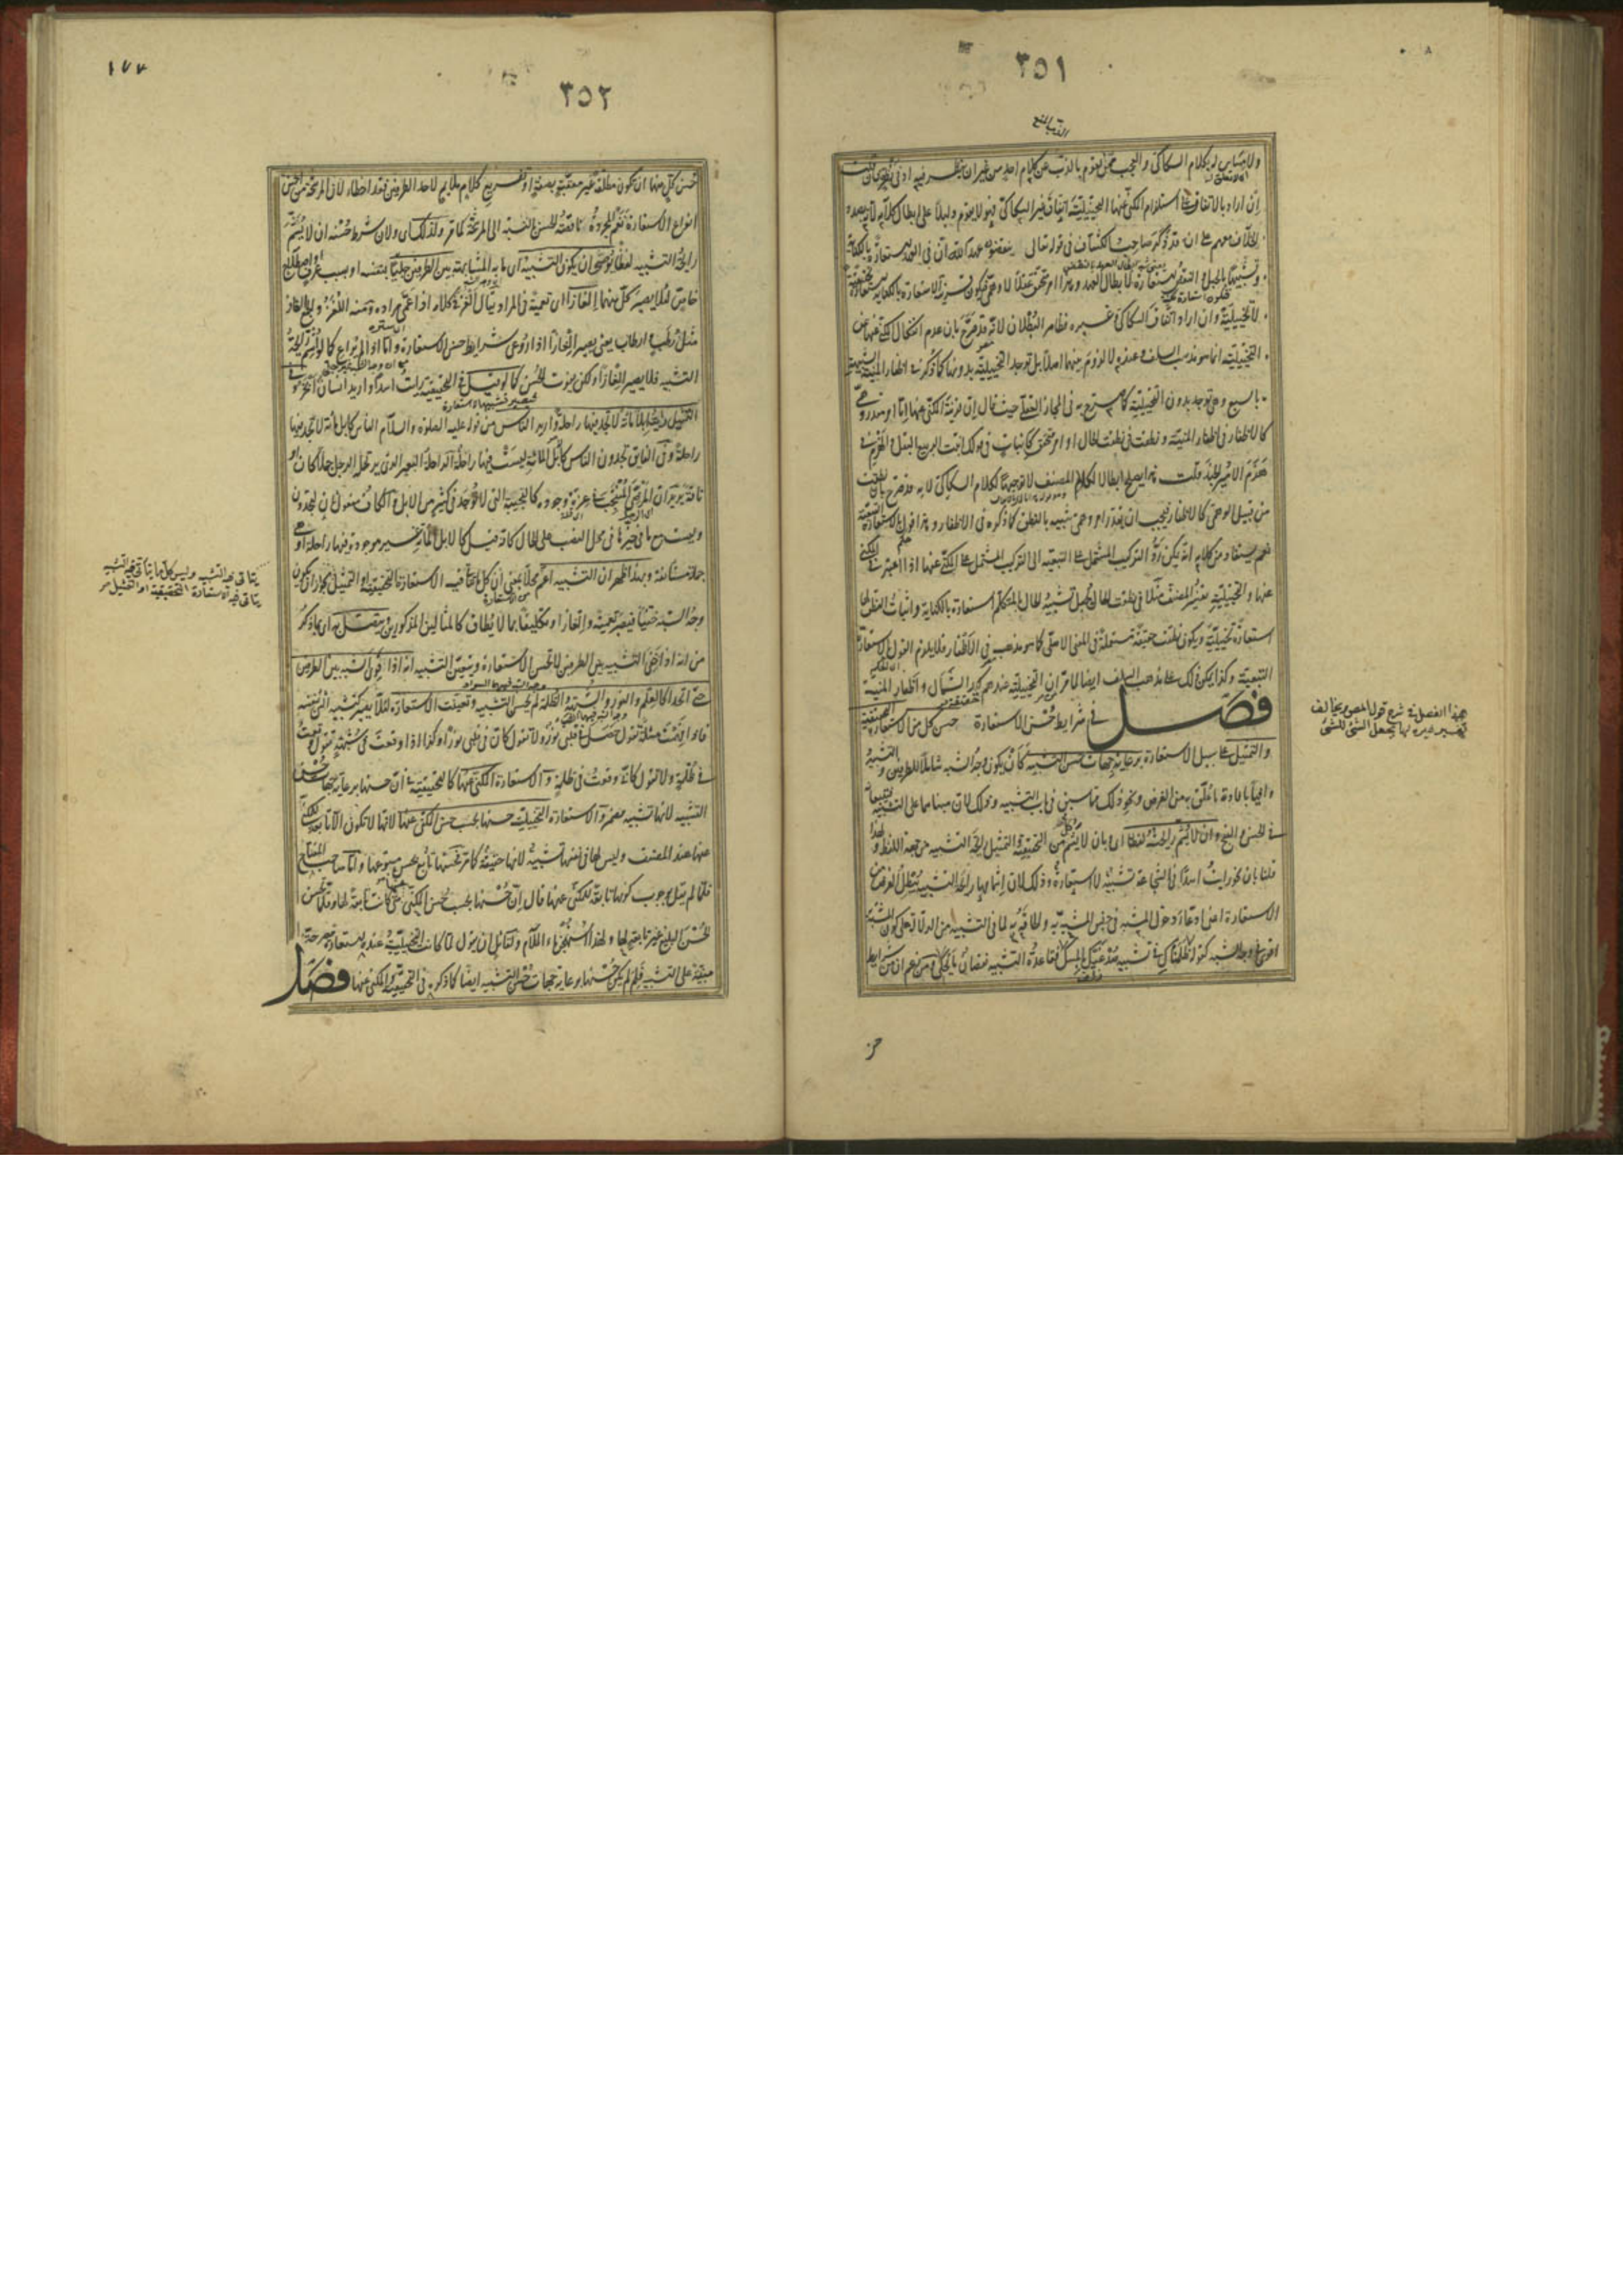 ٣٥١
ولا مساس له بكلام السكاكي والعجب ممن يقوم بالذب عن كلام احد من غير ان ينظر فيه ادنى نظر فان قلت
ان اراد بالاتفاق على استلزام المكنى عنها التخييلية اتفاق غير السكاكي فهو لا يقوم دليلا على ابطال كلامه لانه بصدد
الخلاف معهم على ان قد ذكر صاحب الكشاف في قوله تعالى ينقضون عهد الله ان في العهد استعارة بالكناية
وتشبيها بالحبل والنقض استعارة لابطال العهد وهذا امر محقق عقلا لا وهمي فيكون قرينة الاستعارة بالكناية استعارة تحقيقية
لا تخييلية وان اراد اتفاق السكاكي وغيره فظاهر البطلان لانه قد صرح بان عدم انفكاك المكنى عنها عن
التخييلية انما هو مذهب السلف وعنده لا لزوم بينهما اصلا بل توجد التخييلية بدونها كما ذكر في اظفار المنية الشبيهة
بالسبع وهي توجد بدون التخييلية كما صرح به في المجاز العقلي حيث قال ان قرينة المكنى عنها اما امر مقدر وهمي
كالاظفار في اظفار المنية ونطقت في نطقت الحال او امر محقق كالانبات في قولك انبت الربيع البقل والهزم في
هزم الامير الجند قلت هذا يصلح ابطالا لكلام المصنف لا توجيها لكلام السكاكي لانه قد صرح بان نطقت
من قبيل الوهمي كالاظفار فيجب ان يقدر امر وهمي شبيه بالنطق كما ذكره في الاظفار وهذا قول بالاستعارة التبعية
نعم يستفاد من كلامه انه يمكن رد التركيب المشتمل على التبعية الى التركيب المشتمل على المكنى عنها اذا اعتبر في المكنى
عنها والتخييلية تفسير المصنف مثلا في نطقت الحال يجعل تشبيه الحال بالمتكلم استعارة بالكناية واثبات النطق لها
استعارة تخييلية ويكون نطقت حقيقة مستعملة في المعنى الاصلي كما هو مذهبه في الاظفار فلا يلزم القول بالاستعارة
التبعية وكذا يمكن ذلك على مذهب السلف ايضا لما مر ان التخييلية عندهم كيد الشمال واظفار المنية
فصل في شرايط حسن الاستعارة حسن كل من الاستعارة التحقيقية
والتمثيل على سبيل الاستعارة برعاية جهات حسن التشبيه كأن يكون وجه الشبه شاملا للطرفين والتشبيه
وافيا بافادة ما علق به من الغرض ونحو ذلك مما سبق في باب التشبيه وذلك لان مبناهما على التشبيه فيتبعانه
في الحسن والقبح وان لا يشم رايحته لفظا اى وبان لا يشم شئ من التحقيقية والتمثيل رايحة التشبيه من جهة اللفظ ولهذا
قلنا بان نحو رايت اسدا في الشجاعة تشبيه لا استعارة وذلك لان اشمامها رايحة التشبيه يبطل الغرض من
الاستعارة اعنى ادعاء دخول المشبه في جنس المشبه به والحاقه به لما في التشبيه من الدلالة على كون المشبه به
اقوى في وجه الشبه
من
هذا الفصل في شرح قول المص
٣٥٢
١٧٧
حسن كل منهما ان تكون مطلقة غير معقبة بصفة او تفريع كلام ملايم لاحد الطرفين فقد اخطاء لان المرشحة من احسن
انواع الاستعارة نعم المجردة ناقصة الحسن بالنسبة الى المرشحة كما مر ولذلك اى ولان شرط حسنه ان لا يشم
رايحة التشبيه لفظا يوصى ان يكون التشبيه اى ما به المشابهة بين الطرفين جليا بنفسه او بسبب عرف او اصطلاح
خاص لئلا يصير كل منهما الغازا اى تعمية في المراد يقال الغز في كلامه اذا عمى مراده ومنه اللغز والجمع الغاز
مثل رطب وارطاب يعنى يصير الغازا اذا روعى شرايط حسن الاستعارة واما اذا لم يراع كما لو شم رايحة
التشبيه فلا يصير الغازا ولكن يفوت الحسن كما لو قيل في التحقيقية رايت اسدا واريد انسان ابخر وفي
التمثيل رايت ابلا مائة لا تجد فيها راحلة واريد الناس من قوله عليه الصلوة والسلام الناس كابل مائة لا تجد فيها
راحلة وفى الفايق تجدون الناس كالابل المائة ليست فيها راحلة الراحلة البعير الذى يرتحله الرجل جملا كان او
ناقة يريد ان المرضى المنتخب في عزة وجوده كالنجيبة التى لا توجد في كثير من الابل والكاف مفعول ثان لتجدون
وليست مع ما في حيزها في محل النصب على الحال كانه قيل كالابل المائة غير موجودة فيها راحلة او هى
جملة مستأنفة وبهذا ظهر ان التشبيه اعم محلا بمعنى ان كل ما يتأتى فيه الاستعارة التحقيقية او التمثيل لجواز ان يكون
وجه الشبه خفيا فيصير تعمية والغازا وتكليفا بما لا يطاق كالمثالين المذكورين ويتصل به اى بما ذكر
من انه اذا خفى التشبيه بين الطرفين لا تحسن الاستعارة ويتعين التشبيه انه اذا قوى الشبه بين الطرفين
حتى اتحدا كالعلم والنور والشبهة والظلمة لم يحسن التشبيه وتعينت الاستعارة لئلا يصير كتشبيه الشئ بنفسه
فاذا فهمت مسئلة تقول حصل في قلبى نور ولا تقول كان في قلبى نورا وكذا اذا وقعت في شبهة تقول وقعت
في ظلمة ولا تقول كانى وقعت في ظلمة والاستعارة المكنى عنها كالتحقيقية في ان حسنها برعاية جهات حسن
التشبيه لانها تشبيه مضمر والاستعارة التخييلية حسنها بحسب حسن المكنى عنها لانها لا تكون الا تابعة للمكنى
عنها عند المصنف وليس لها في نفسها تشبيه لانها حقيقة كما مر فحسنها تابع لحسن متبوعها واما صاحب المفتاح
فلما لم يقل بوجوب كونها تابعة للمكنى عنها قال ان حسنها بحسب حسن المكنى عنها متى كانت تابعة لها وقلما تحسن
الحسن البليغ غير تابعة لها ولهذا استهجن ماء الملام ولقائل ان يقول لما كانت التخييلية عنده استعارة مصرحة
مبنية على التشبيه فلم لم يكن حسنها برعاية جهات حسن التشبيه ايضا كما ذكر في التحقيقية والمكنى عنها فصل